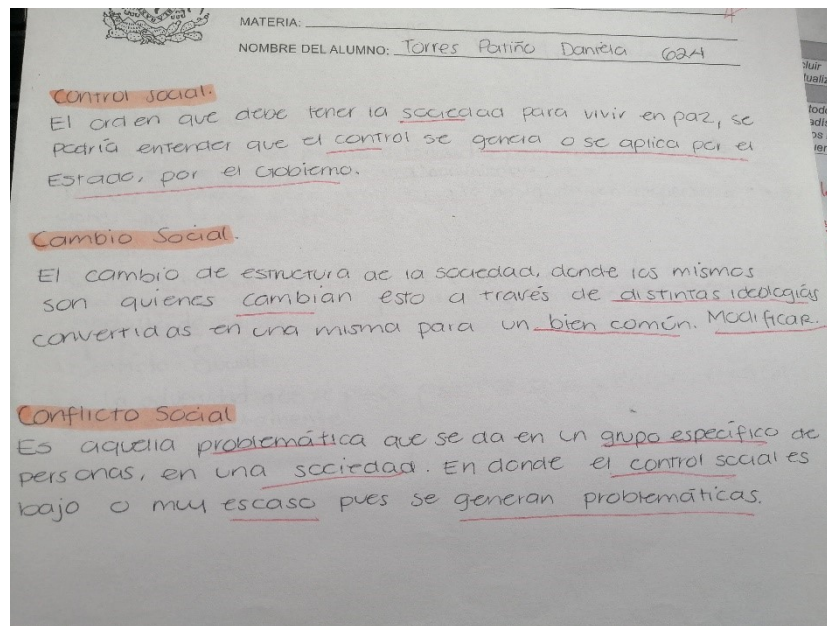 MATERIA:
NOMBRE DEL ALUMNO: Torres Patiño Daniela 62A
Control social.
El orden que debe tener la sociedad para vivir en paz, se
podría entender que el control se genera o se aplica por el
Estado, por el Gobierno.
Cambio Social.
El cambio de estructura de la sociedad, donde los mismos
son quienes cambian esto a través de distintas ideologías
convertidas en una misma para un bien común. Modificar.
Conflicto Social
Es aquella problemática que se da en un grupo específico de
personas, en una sociedad. En donde el control social es
bajo o muy escaso pues se generan problemáticas.